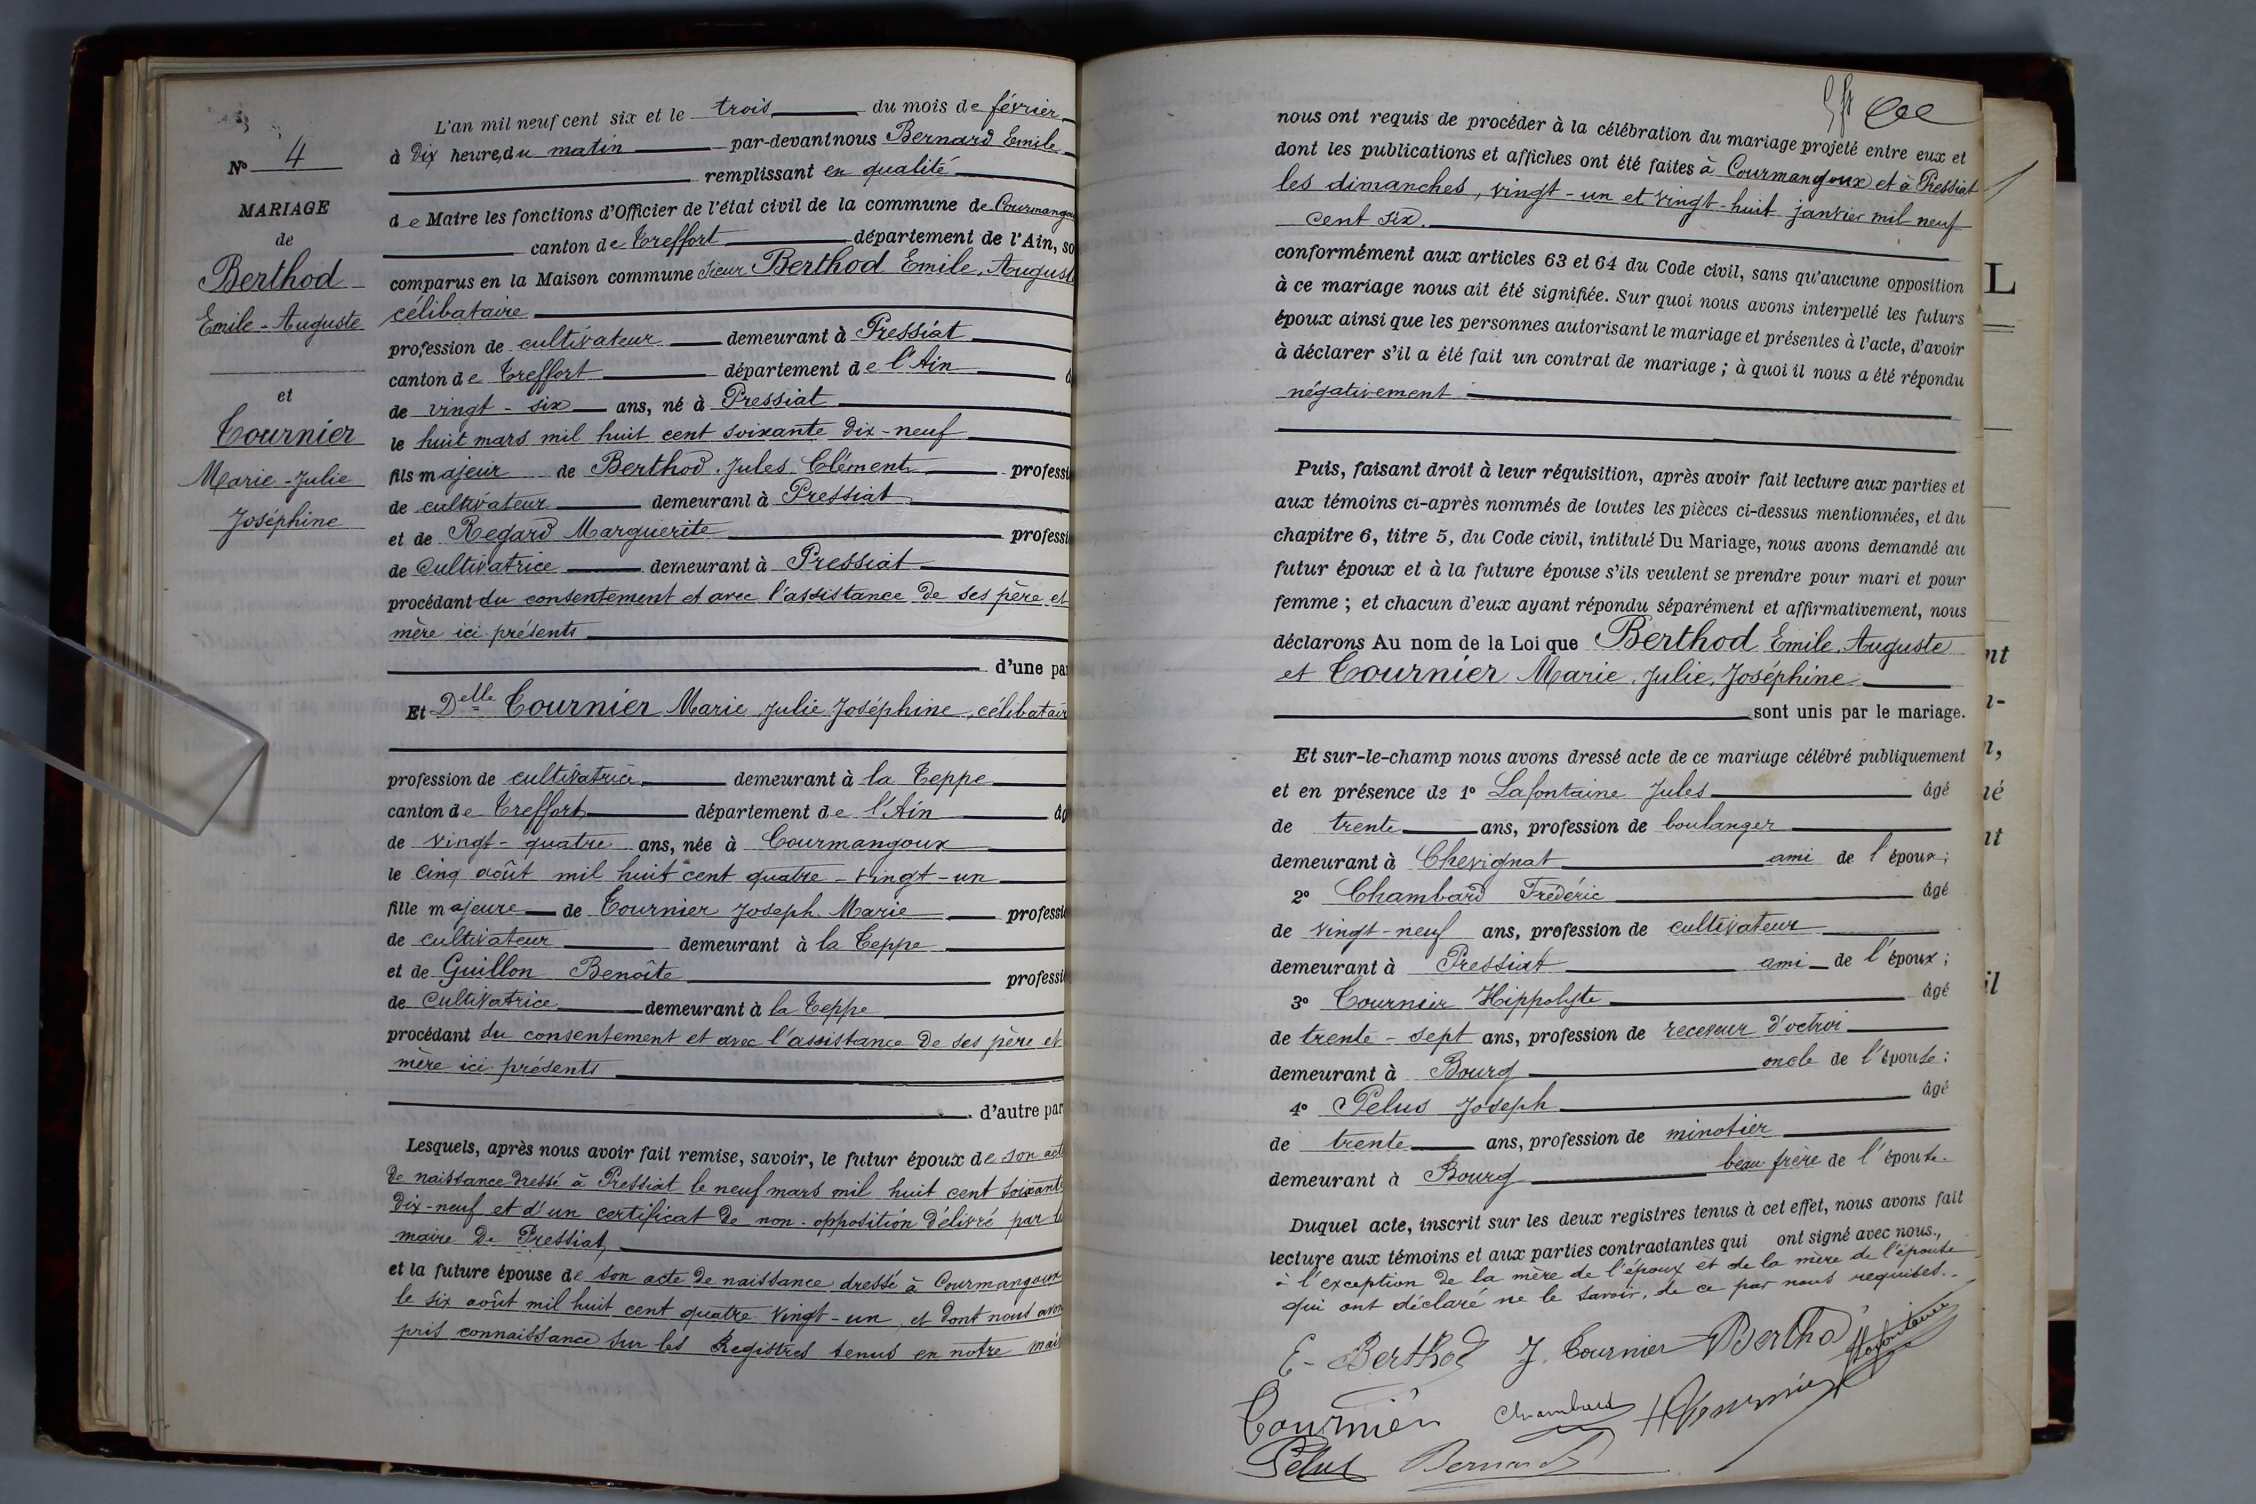 N° 4
MARIAGE
de
Berthod
Emile-Auguste
et
Tournier
Marie-Julie
Joséphine
L'an mil neuf cent six et le trois du mois de février
à Dix heures du matin par-devant nous Bernard Emile
remplissant en qualité
de Maire les fonctions d'Officier de l'état civil de la commune de Courmangou
canton de Treffort département de l'Ain, so
comparus en la Maison commune Sieur Berthod Emile, August
célibataire
profession de cultivateur demeurant à Pressiat
canton de Treffort département de l'Ain
de vingt-six ans, né à Pressiat
le huit mars mil huit cent soixante dix-neuf
fils majeur de Berthod Jules Clément professi
de cultivateur demeurant à Pressiat
et de Regard Marguerite professi
de Cultivatrice demeurant à Pressiat
procédant du consentement et avec l'assistance de ses père et
mère ici présents
d'une par
Et Delle Tournier Marie Julie Joséphine, célibatair
profession de cultivatrice demeurant à la Teppe
canton de Treffort département de l'Ain âg
de vingt-quatre ans, née à Courmangoux
le cinq août mil huit cent quatre-vingt-un
fille majeure de Tournier Joseph Marie professio
de cultivateur demeurant à la Teppe
et de Guillon Benoîte professio
de Cultivatrice demeurant à la Teppe
procédant du consentement et avec l'assistance de ses père et
mère ici présents
d'autre par
Lesquels, après nous avoir fait remise, savoir, le futur époux de son act
de naissance dressé à Pressiat le neuf mars mil huit cent soixante
Dix-neuf et d'un certificat de non-opposition délivré par le
maire de Pressiat,
et la future épouse de son acte de naissance dressé à Courmangoux
le six août mil huit cent quatre vingt-un, et dont nous avon
pris connaissance sur les Registres tenus en notre mair
nous ont requis de procéder à la célébration du mariage projeté entre eux et
dont les publications et affiches ont été faites à Courmangoux et à Pressiat
les dimanches, vingt-un et vingt-huit janvier mil neuf
cent six.
conformément aux articles 63 et 64 du Code civil, sans qu'aucune opposition
à ce mariage nous ait été signifiée. Sur quoi nous avons interpellé les futurs
époux ainsi que les personnes autorisant le mariage et présentes à l'acte, d'avoir
à déclarer s'il a été fait un contrat de mariage ; à quoi il nous a été répondu
négativement
Puis, faisant droit à leur réquisition, après avoir fait lecture aux parties et
aux témoins ci-après nommés de toutes les pièces ci-dessus mentionnées, et du
chapitre 6, titre 5, du Code civil, intitulé Du Mariage, nous avons demandé au
futur époux et à la future épouse s'ils veulent se prendre pour mari et pour
femme ; et chacun d'eux ayant répondu séparément et affirmativement, nous
déclarons Au nom de la Loi que Berthod Emile, Auguste
et Tournier Marie, Julie, Joséphine
sont unis par le mariage.
Et sur-le-champ nous avons dressé acte de ce mariage célébré publiquement
et en présence de 1° Lafontaine Jules âgé
de trente ans, profession de boulanger
demeurant à Chevignat ami de l'époux ;
2° Chambard Frédéric âgé
de vingt-neuf ans, profession de cultivateur
demeurant à Pressiat ami de l'époux ;
3° Tournier Hippolyte âgé
de trente-sept ans, profession de receveur d'octroi
demeurant à Bourg oncle de l'épouse ;
4° Pelus Joseph âgé
de trente ans, profession de minotier
demeurant à Bourg beau frère de l'épouse.
Duquel acte, inscrit sur les deux registres tenus à cet effet, nous avons fait
lecture aux témoins et aux parties contractantes qui ont signé avec nous,
à l'exception de la mère de l'époux et de la mère de l'épouse
qui ont déclaré ne le savoir, de ce par nous requises.
E. Berthod J. Tournier Berthod Lafontaine
Tournier Chambard H Tournier
Pelus Bernard
L
nt
n,
né
nt
il